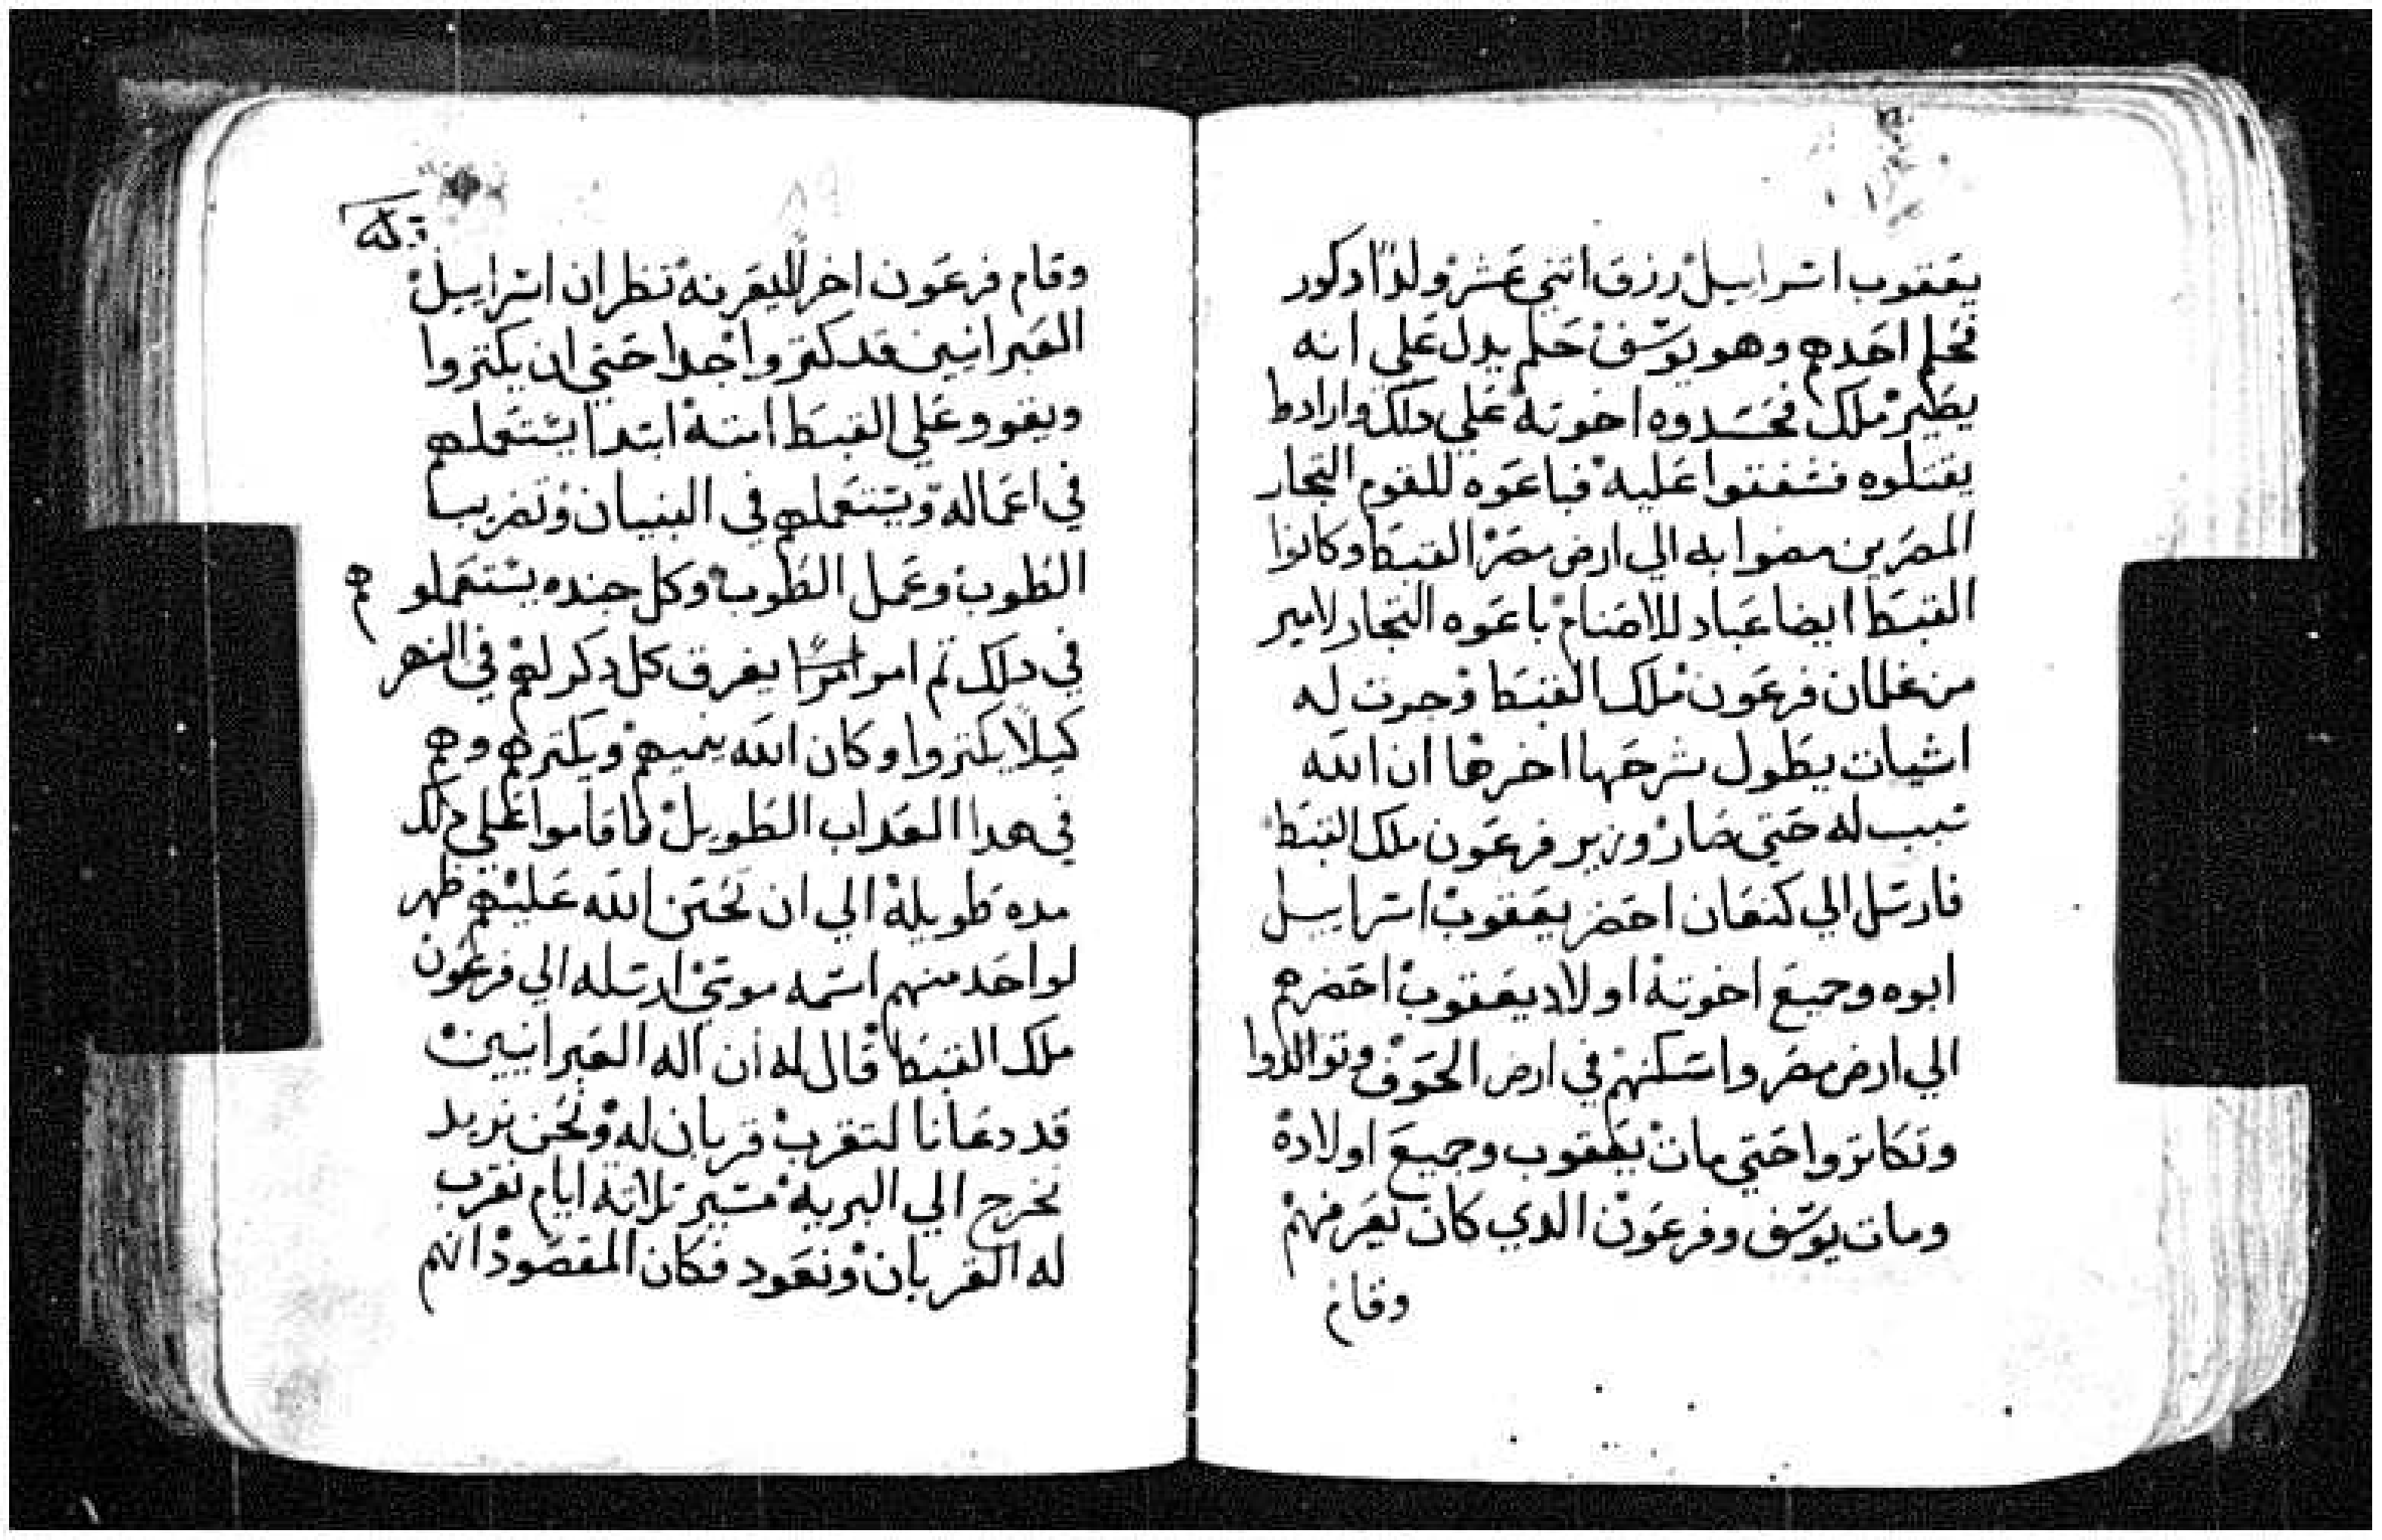 يعقوب اسراييل رزق اتني عشر ولدًا دكور
فحلم احدهم وهو يوسف حلم يدل علي انه
يصير ملك فحسدوه اخوته علي دلك وارادوا
يقتلوه فشفقوا عليه فباعوه للقوم التجار
المصريين مضوا به الي ارض مصر القبط وكانوا
القبط ايضا عباد للاصنام باعوه التجار لامير
من غلمان فرعون ملك القبط وجرت له
اشيات يطول شرحها اخرها ان الله
سبب له حتي صار وزير فرعون ملك القبط
فارسل الي كنعان احضر يعقوب اسراييل
ابوه وجميع اخوته اولاد يعقوب احضرهم
الي ارض مصر واسكنهم في ارض الحوف وتوالدوا
وتكاتروا حتي مات يعقوب وجميع اولاده
ومات يوسف وفرعون الدي كان يعرفهم
وقام
وقام فرعون اخر لا يعرفه نظر ان اسراييل
العبرانيين قد كتروا جدا حتي ان يكتروا
ويقووا علي القبط امته ابتدا يستعملهم
في اعماله ويستعملهم في البنيان وتضريب
الطوب وعمل الطوب وكل جنده يستعملوهم
في دلك تم امر يغرق كل دكر لهم في النهر
كيلا يكتروا وكان الله ينميهم ويكترهم وهم
في هدا العداب الطويل فاقاموا علي دلك
مده طويلة الي ان تحنن الله عليهم ظهر
لواحد منهم اسمه موسي ارسله الي فرعون
ملك القبط قال له ان اله العبرانيين
قد دعانا لنقرب قربان له ونحن نريد
نخرج الي البرية مسير تلاتة ايام نقرب
له القربان ونعود فكان المقصود انهم